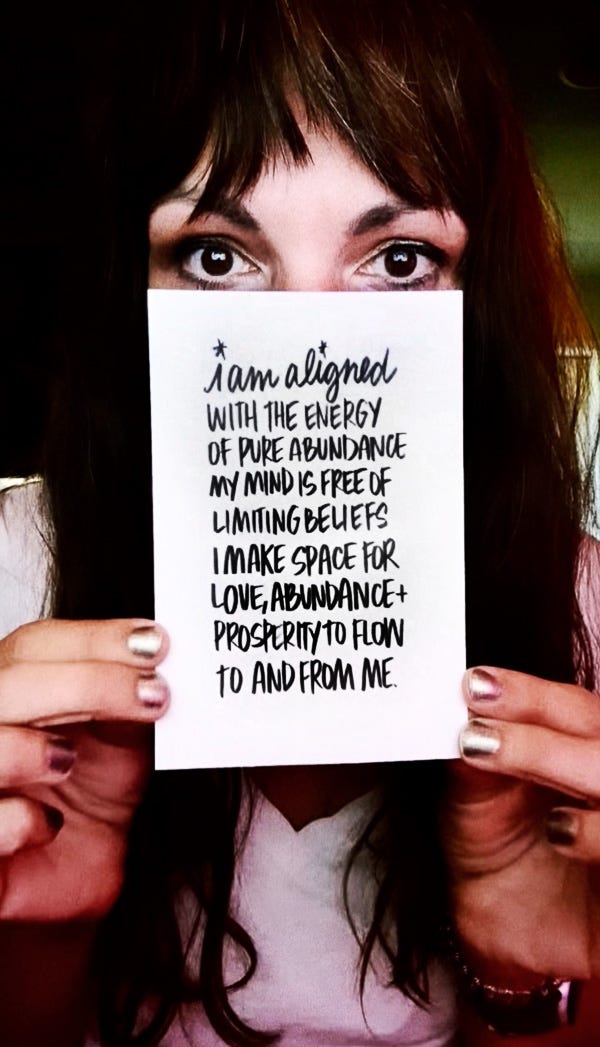 *i am aligned*
WITH THE ENERGY
OF PURE ABUNDANCE
MY MIND IS FREE OF
LIMITING BELIEFS
I MAKE SPACE FOR
LOVE, ABUNDANCE +
PROSPERITY TO FLOW
TO AND FROM ME.